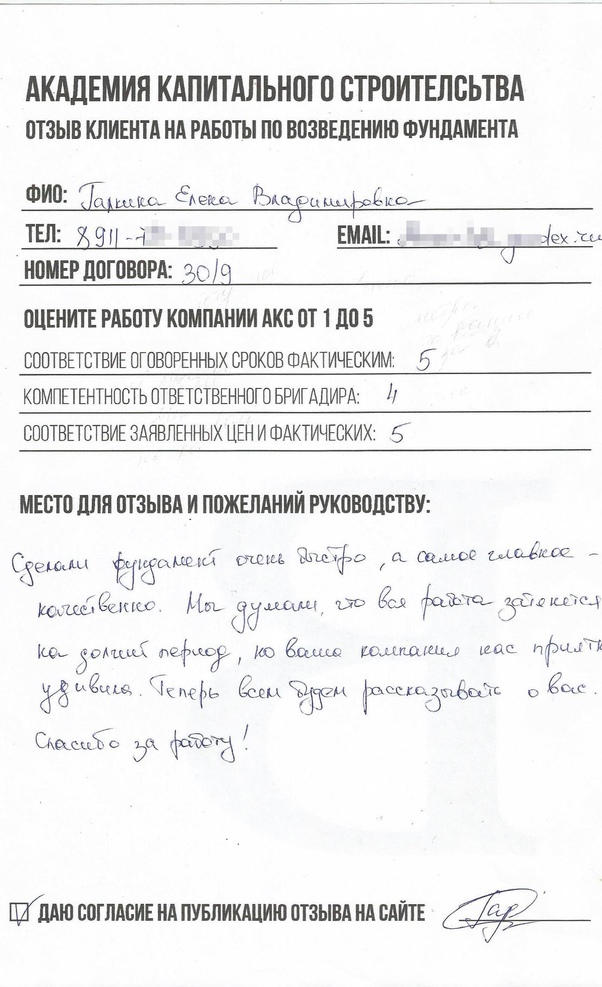 АКАДЕМИЯ КАПИТАЛЬНОГО СТРОИТЕЛСЬТВА
ОТЗЫВ КЛИЕНТА НА РАБОТЫ ПО ВОЗВЕДЕНИЮ ФУНДАМЕНТА
ФИО: Елена Владимировна
ТЕЛ: 8911-7
EMAIL: dex.ru
НОМЕР ДОГОВОРА: 30/9
ОЦЕНИТЕ РАБОТУ КОМПАНИИ АКС ОТ 1 ДО 5
СООТВЕТСТВИЕ ОГОВОРЕННЫХ СРОКОВ ФАКТИЧЕСКИМ: 5
КОМПЕТЕНТНОСТЬ ОТВЕТСТВЕННОГО БРИГАДИРА: 4
СООТВЕТСТВИЕ ЗАЯВЛЕННЫХ ЦЕН И ФАКТИЧЕСКИХ: 5
МЕСТО ДЛЯ ОТЗЫВА И ПОЖЕЛАНИЙ РУКОВОДСТВУ:
Сделали фундамент очень быстро, а самое главное -
качественно. Мы думали, что вся работа затянется
на долгий период, но ваша компания нас приятн
удивила. Теперь всем будем рассказывать о вас.
Спасибо за работу!
ДАЮ СОГЛАСИЕ НА ПУБЛИКАЦИЮ ОТЗЫВА НА САЙТЕ